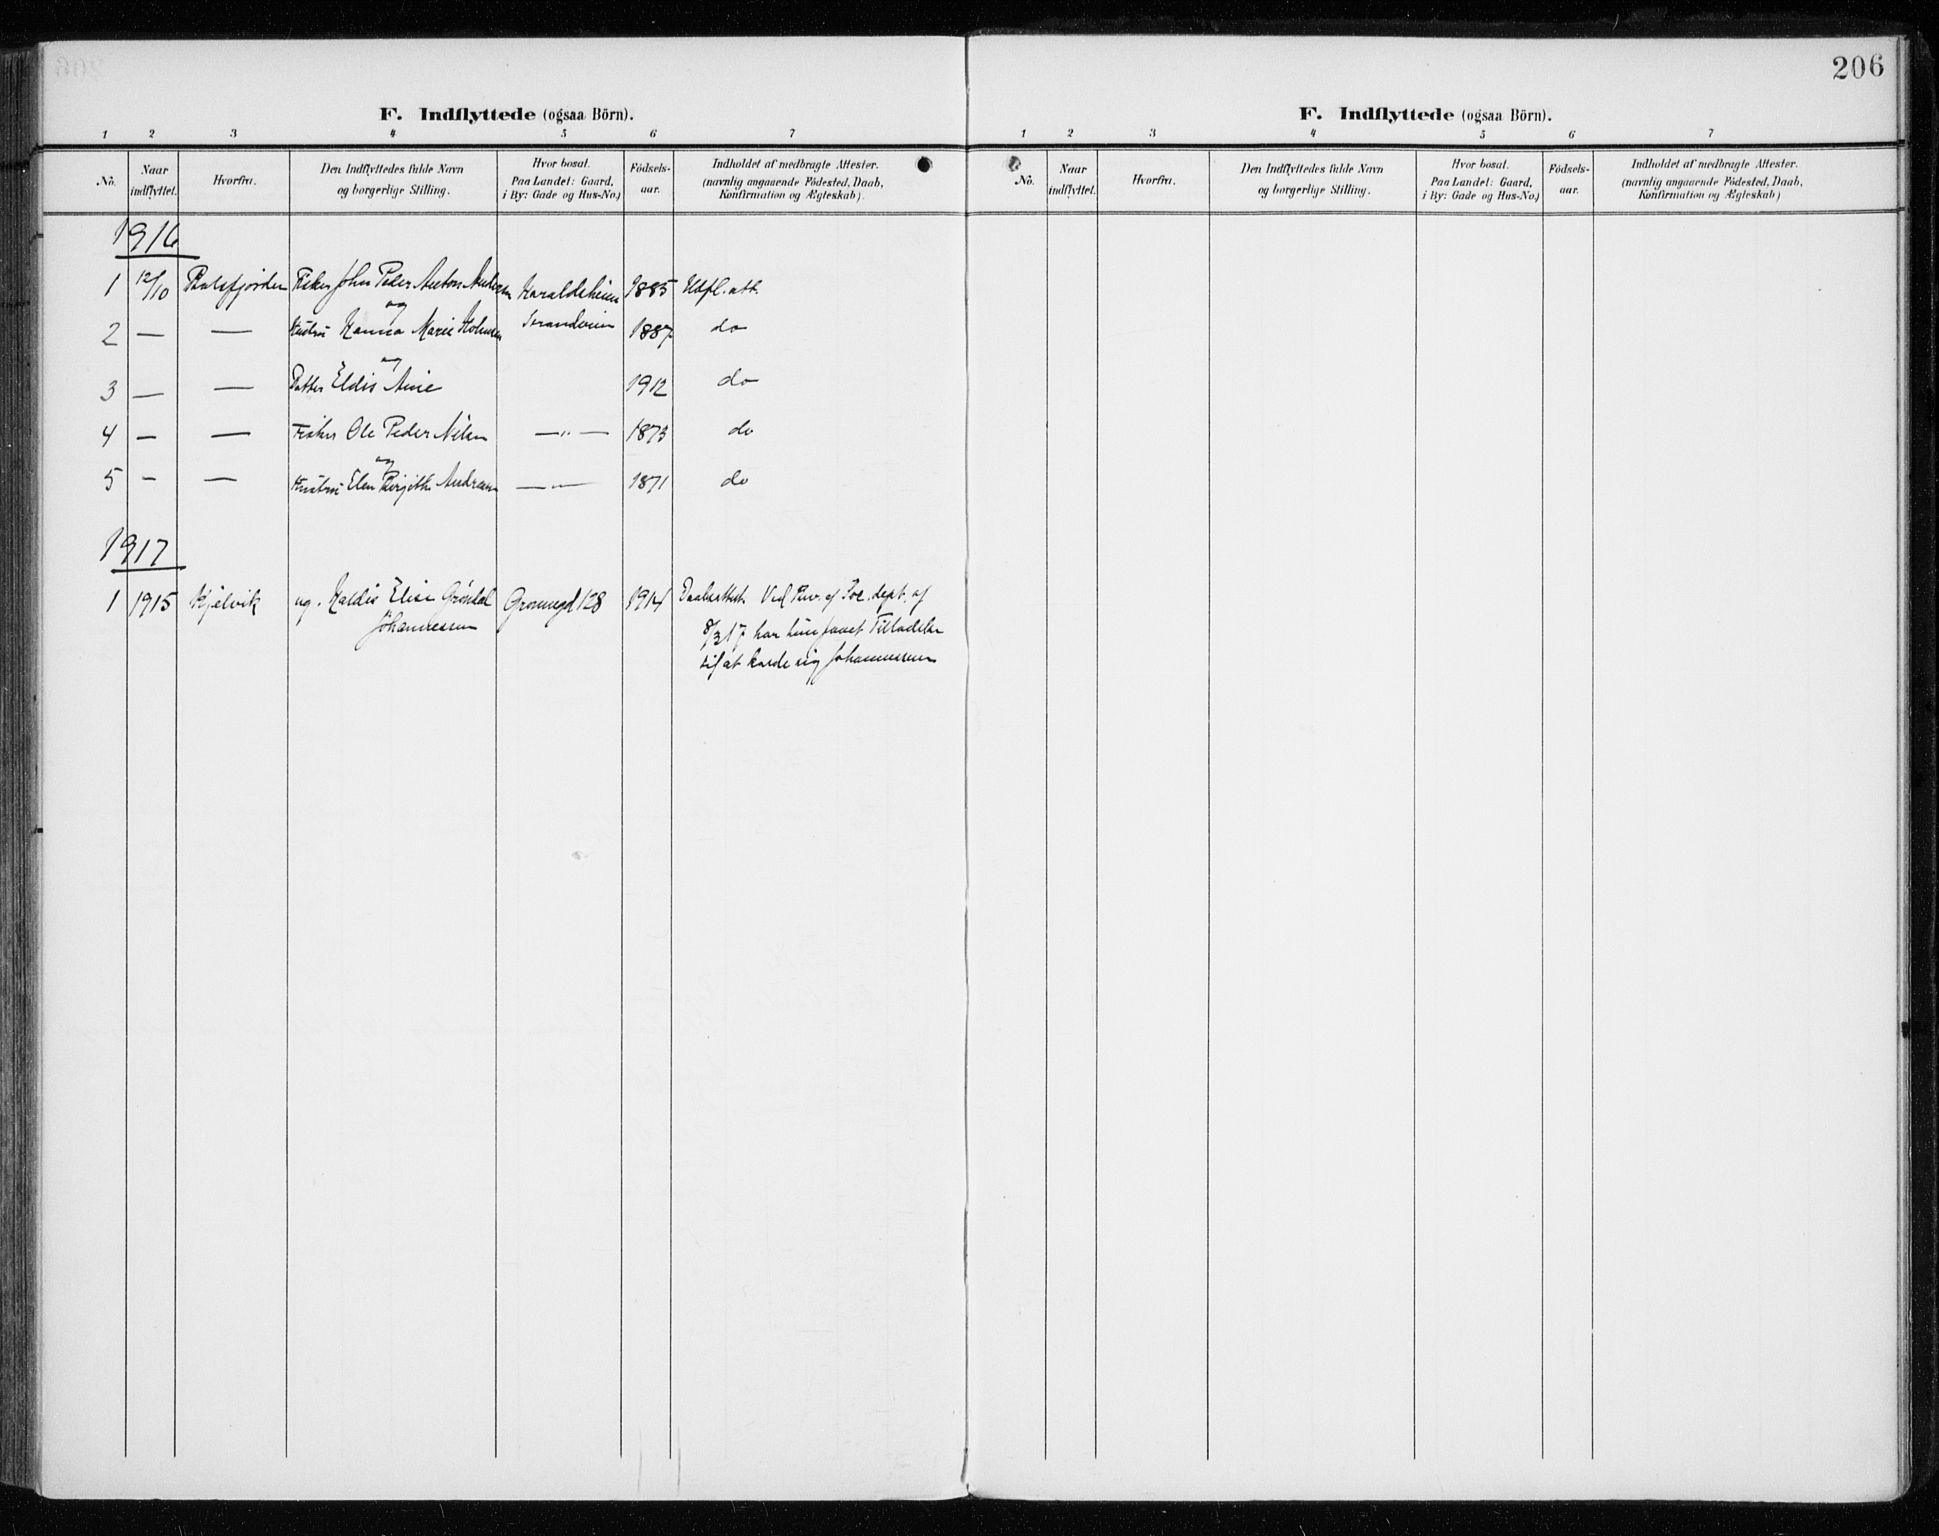 206
F. Indflyttede (ogsaa Börn).
1 2 3 4 5 6 7
No. Naar indflyttet. Hvorfra. Den Indflyttedes fulde Navn og borgerlige Stilling. Hvor bosat. Paa Landet: Gaard, i By: Gade og Hus-No.) Födsels-aar. Indholdet af medbragte Attester. (navnlig angaaende Födested, Daab, Konfirmation og Ægteskab).
1916
1 12/10 Balsfjorden Fisker John Peder Anton Andersen Haraldsheim 1885 Udfl. att.
og
2 — — Hustru Hanna Marie Holmsen Strandveien 1887 do
og
3 — — Datter Eldis Anie 1912 do
4 — — Fisker Ole Peder Nilsen —"— 1873 do
og
5 — — Hustru Elen Birgitte Andersen —"— 1871 do
1917
1 1915 Kjelvik ug. Haldis Elise Gröndal Grönnegd 128 1914 Daabsattest. Ved Skr. af Soc. dept. af
Johannessen 8/3 17 har hun faaet Tilladelse
til at kalde sig Johannessen
F. Indflyttede (ogsaa Börn).
1 2 3 4 5 6 7
No. Naar indflyttet. Hvorfra. Den Indflyttedes fulde Navn og borgerlige Stilling. Hvor bosat. Paa Landet: Gaard, i By: Gade og Hus-No.) Födsels-aar. Indholdet af medbragte Attester. (navnlig angaaende Födested, Daab, Konfirmation og Ægteskab)